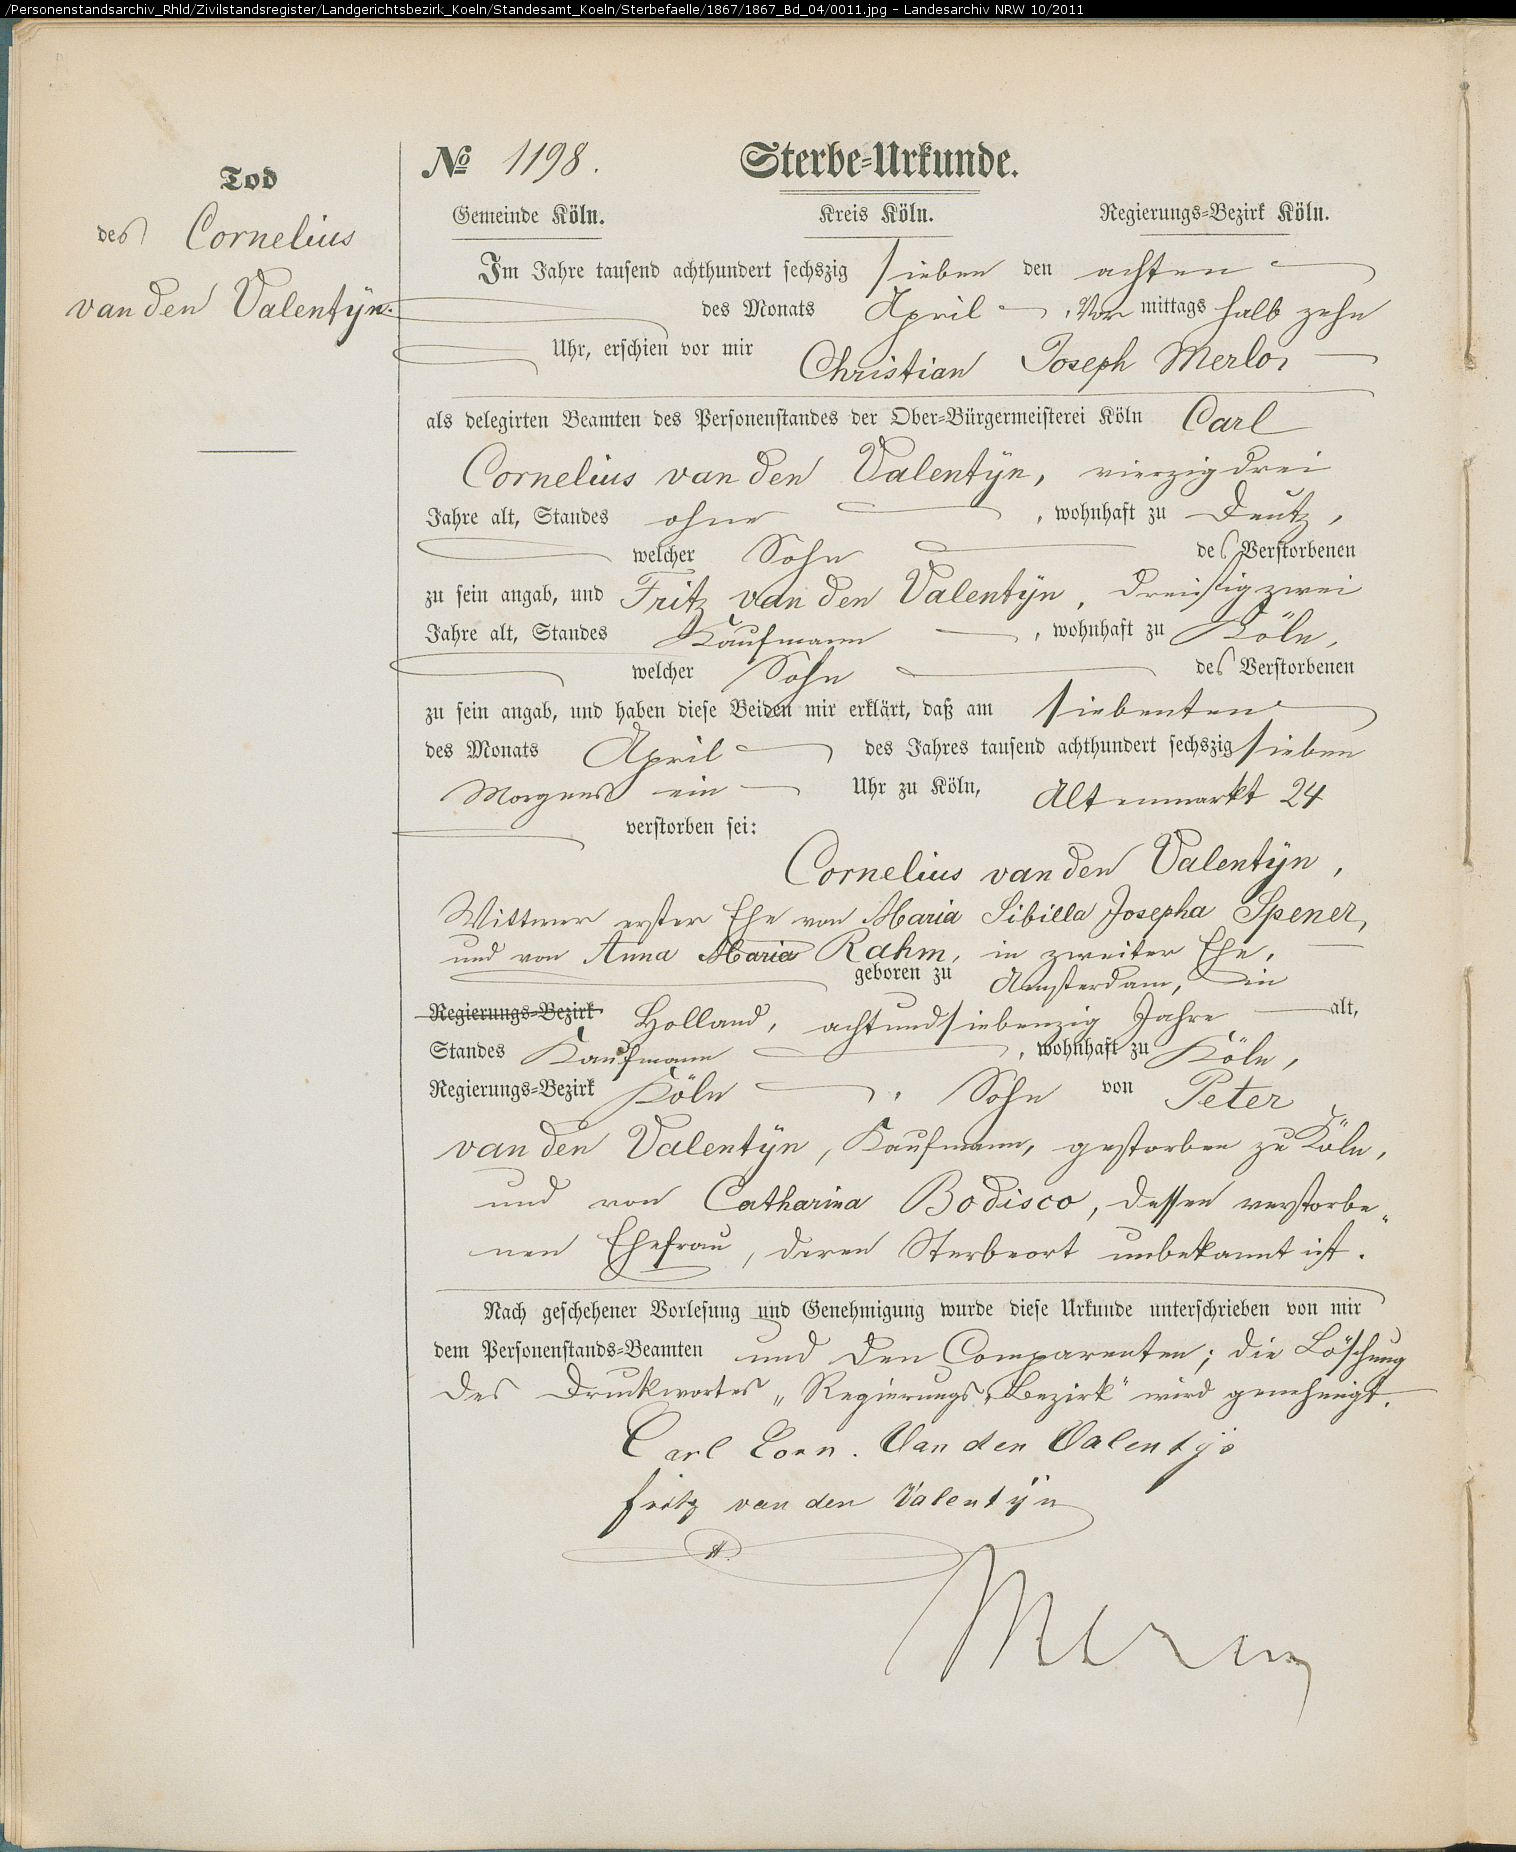 /Personenstandsarchiv_Rhld/Zivilstandsregister/Landgerichtsbezirk_Koeln/Standesamt_Koeln/Sterbefaelle/1867/1867_Bd_04/0011.jpg - Landesarchiv NRW 10/2011
Tod
des Cornelius
van den Valentÿn.
No 1198. Sterbe-Urkunde.
Gemeinde Köln. Kreis Köln. Regierungs-Bezirk Köln.
Im Jahre tausend achthundert sechszig sieben den achten
des Monats April, Vor mittags halb zehn
Uhr, erschien vor mir Christian Joseph Merlo,
als delegirten Beamten des Personenstandes der Ober-Bürgermeisterei Köln Carl
Cornelius van den Valentÿn, vierzig drei
Jahre alt, Standes ohne, wohnhaft zu Deutz,
welcher Sohn des Verstorbenen
zu sein angab, und Fritz van den Valentÿn, dreißig zwei
Jahre alt, Standes Kaufmann, wohnhaft zu Köln,
welcher Sohn des Verstorbenen
zu sein angab, und haben diese Beiden mir erklärt, daß am siebenten
des Monats April des Jahres tausend achthundert sechszig sieben
Morgens ein Uhr zu Köln, Altenmarkt 24
verstorben sei:
Cornelius van den Valentÿn,
Wittwer erster Ehe von Maria Sibilla Josepha Spener,
und von Anna Maria Rahm, in zweiter Ehe,
geboren zu Amsterdam, in
Regierungs-Bezirk Holland, achtundsiebenzig Jahre alt,
Standes Kaufmann, wohnhaft zu Köln,
Regierungs-Bezirk Köln, Sohn von Peter
van den Valentÿn, Kaufmann, gestorben zu Köln,
und von Catharina Bodisco, dessen verstorbe-
nen Ehefrau, deren Sterbeort unbekannt ist.
Nach geschehener Vorlesung und Genehmigung wurde diese Urkunde unterschrieben von mir
dem Personenstands-Beamten und den Comparenten; die Löschung
des Druckwortes „Regierungs-Bezirk" wird genehmigt.
Carl Corn. Van den Valentÿn
Fritz van den Valentÿn
Merlo